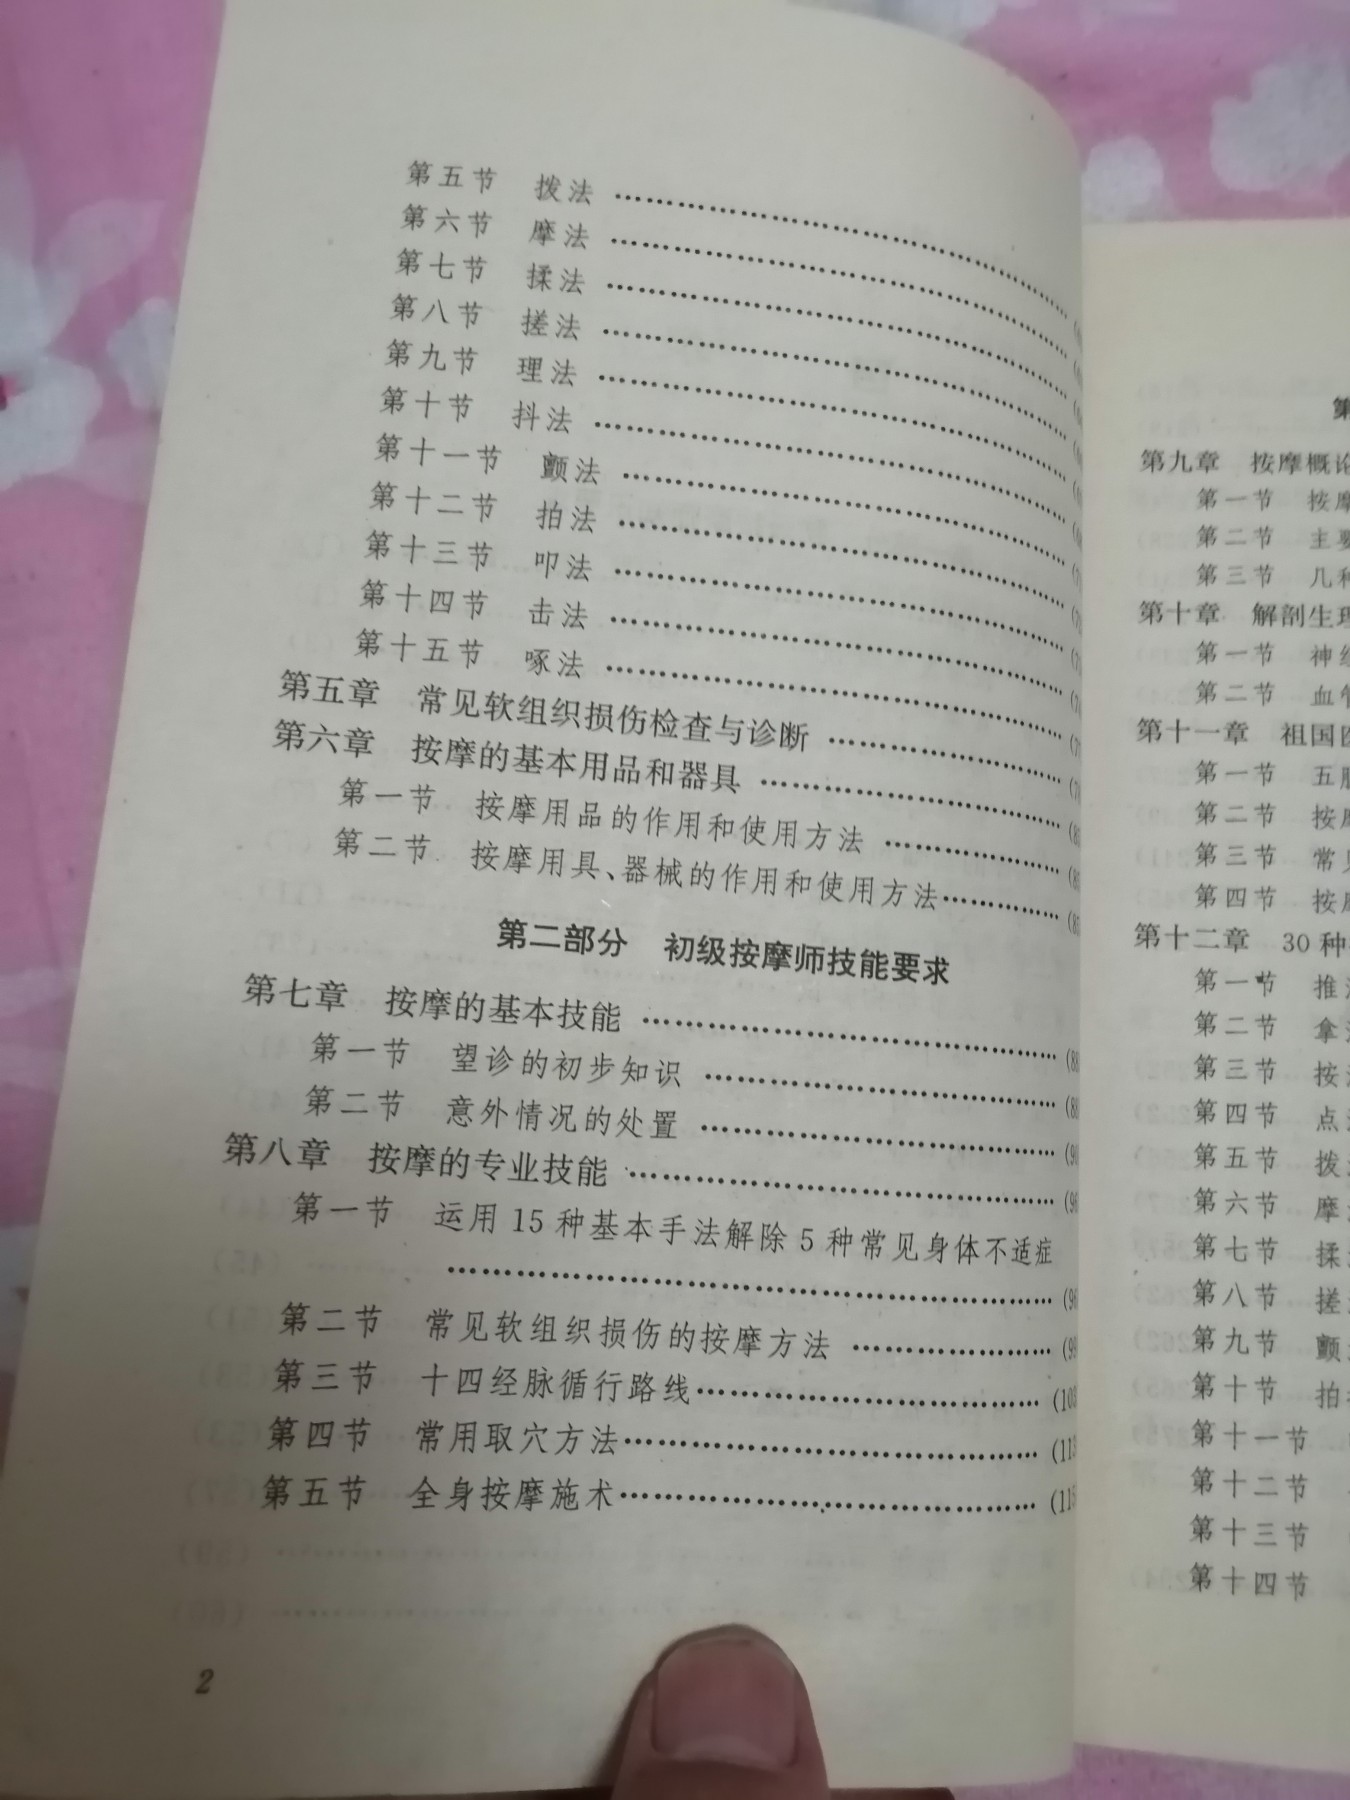 第五节 拨法
第六节 摩法
第七节 揉法
第八节 搓法
第九节 理法
第十节 抖法
第十一节 颤法
第十二节 拍法
第十三节 叩法
第十四节 击法
第十五节 啄法
第五章 常见软组织损伤检查与诊断
第六章 按摩的基本用品和器具
第一节 按摩用品的作用和使用方法
第二节 按摩用具、器械的作用和使用方法
第二部分 初级按摩师技能要求
第七章 按摩的基本技能
第一节 望诊的初步知识
第二节 意外情况的处置
第八章 按摩的专业技能
第一节 运用15种基本手法解除5种常见身体不适症
第二节 常见软组织损伤的按摩方法
第三节 十四经脉循行路线
第四节 常用取穴方法
第五节 全身按摩施术
2
第
第九章 按摩概论
第一节 按摩
第二节 主要
第三节 几种
第十章 解剖生理
第一节 神经
第二节 血管
第十一章 祖国医
第一节 五脏
第二节 按摩
第三节 常见
第四节 按摩
第十二章 30种
第一节 推
第二节 拿
第三节 按
第四节 点
第五节 拨
第六节 摩
第七节 揉
第八节 搓
第九节 颤
第十节 拍
第十一节
第十二节
第十三节
第十四节